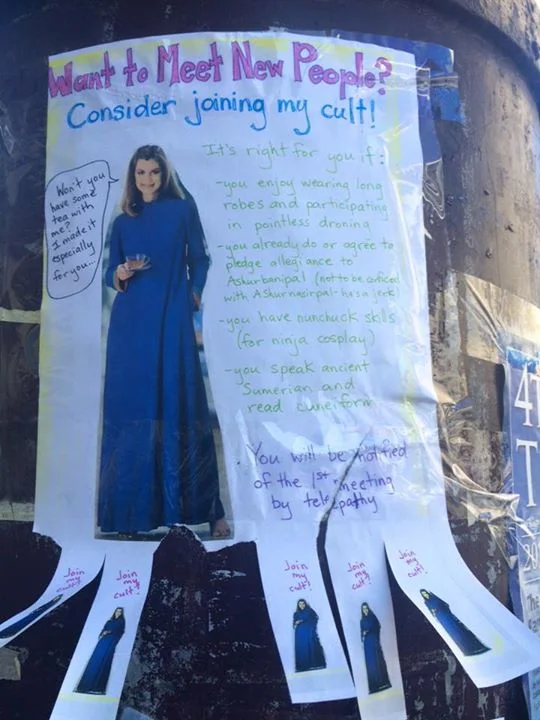 Want to Meet New People?
Consider joining my cult!
Won't you
have some
tea with
me?
I made it
especially
for you...
It's right for you if:
-you enjoy wearing long
robes and participating
in pointless droning
-you already do or agree to
pledge allegiance to
Ashurbanipal (not to be confused
with Ashurnasirpal-hes a jerk)
-you have nunchuck skills
(for ninja cosplay)
-you speak ancient
Sumerian and
read cuneiform
You will be notified
of the 1st meeting
by telepathy
Join
my
cult!
Join
my
cult!
Join
my
cult!
Join
my
cult!
Join
my
cult!
4
T
20
The